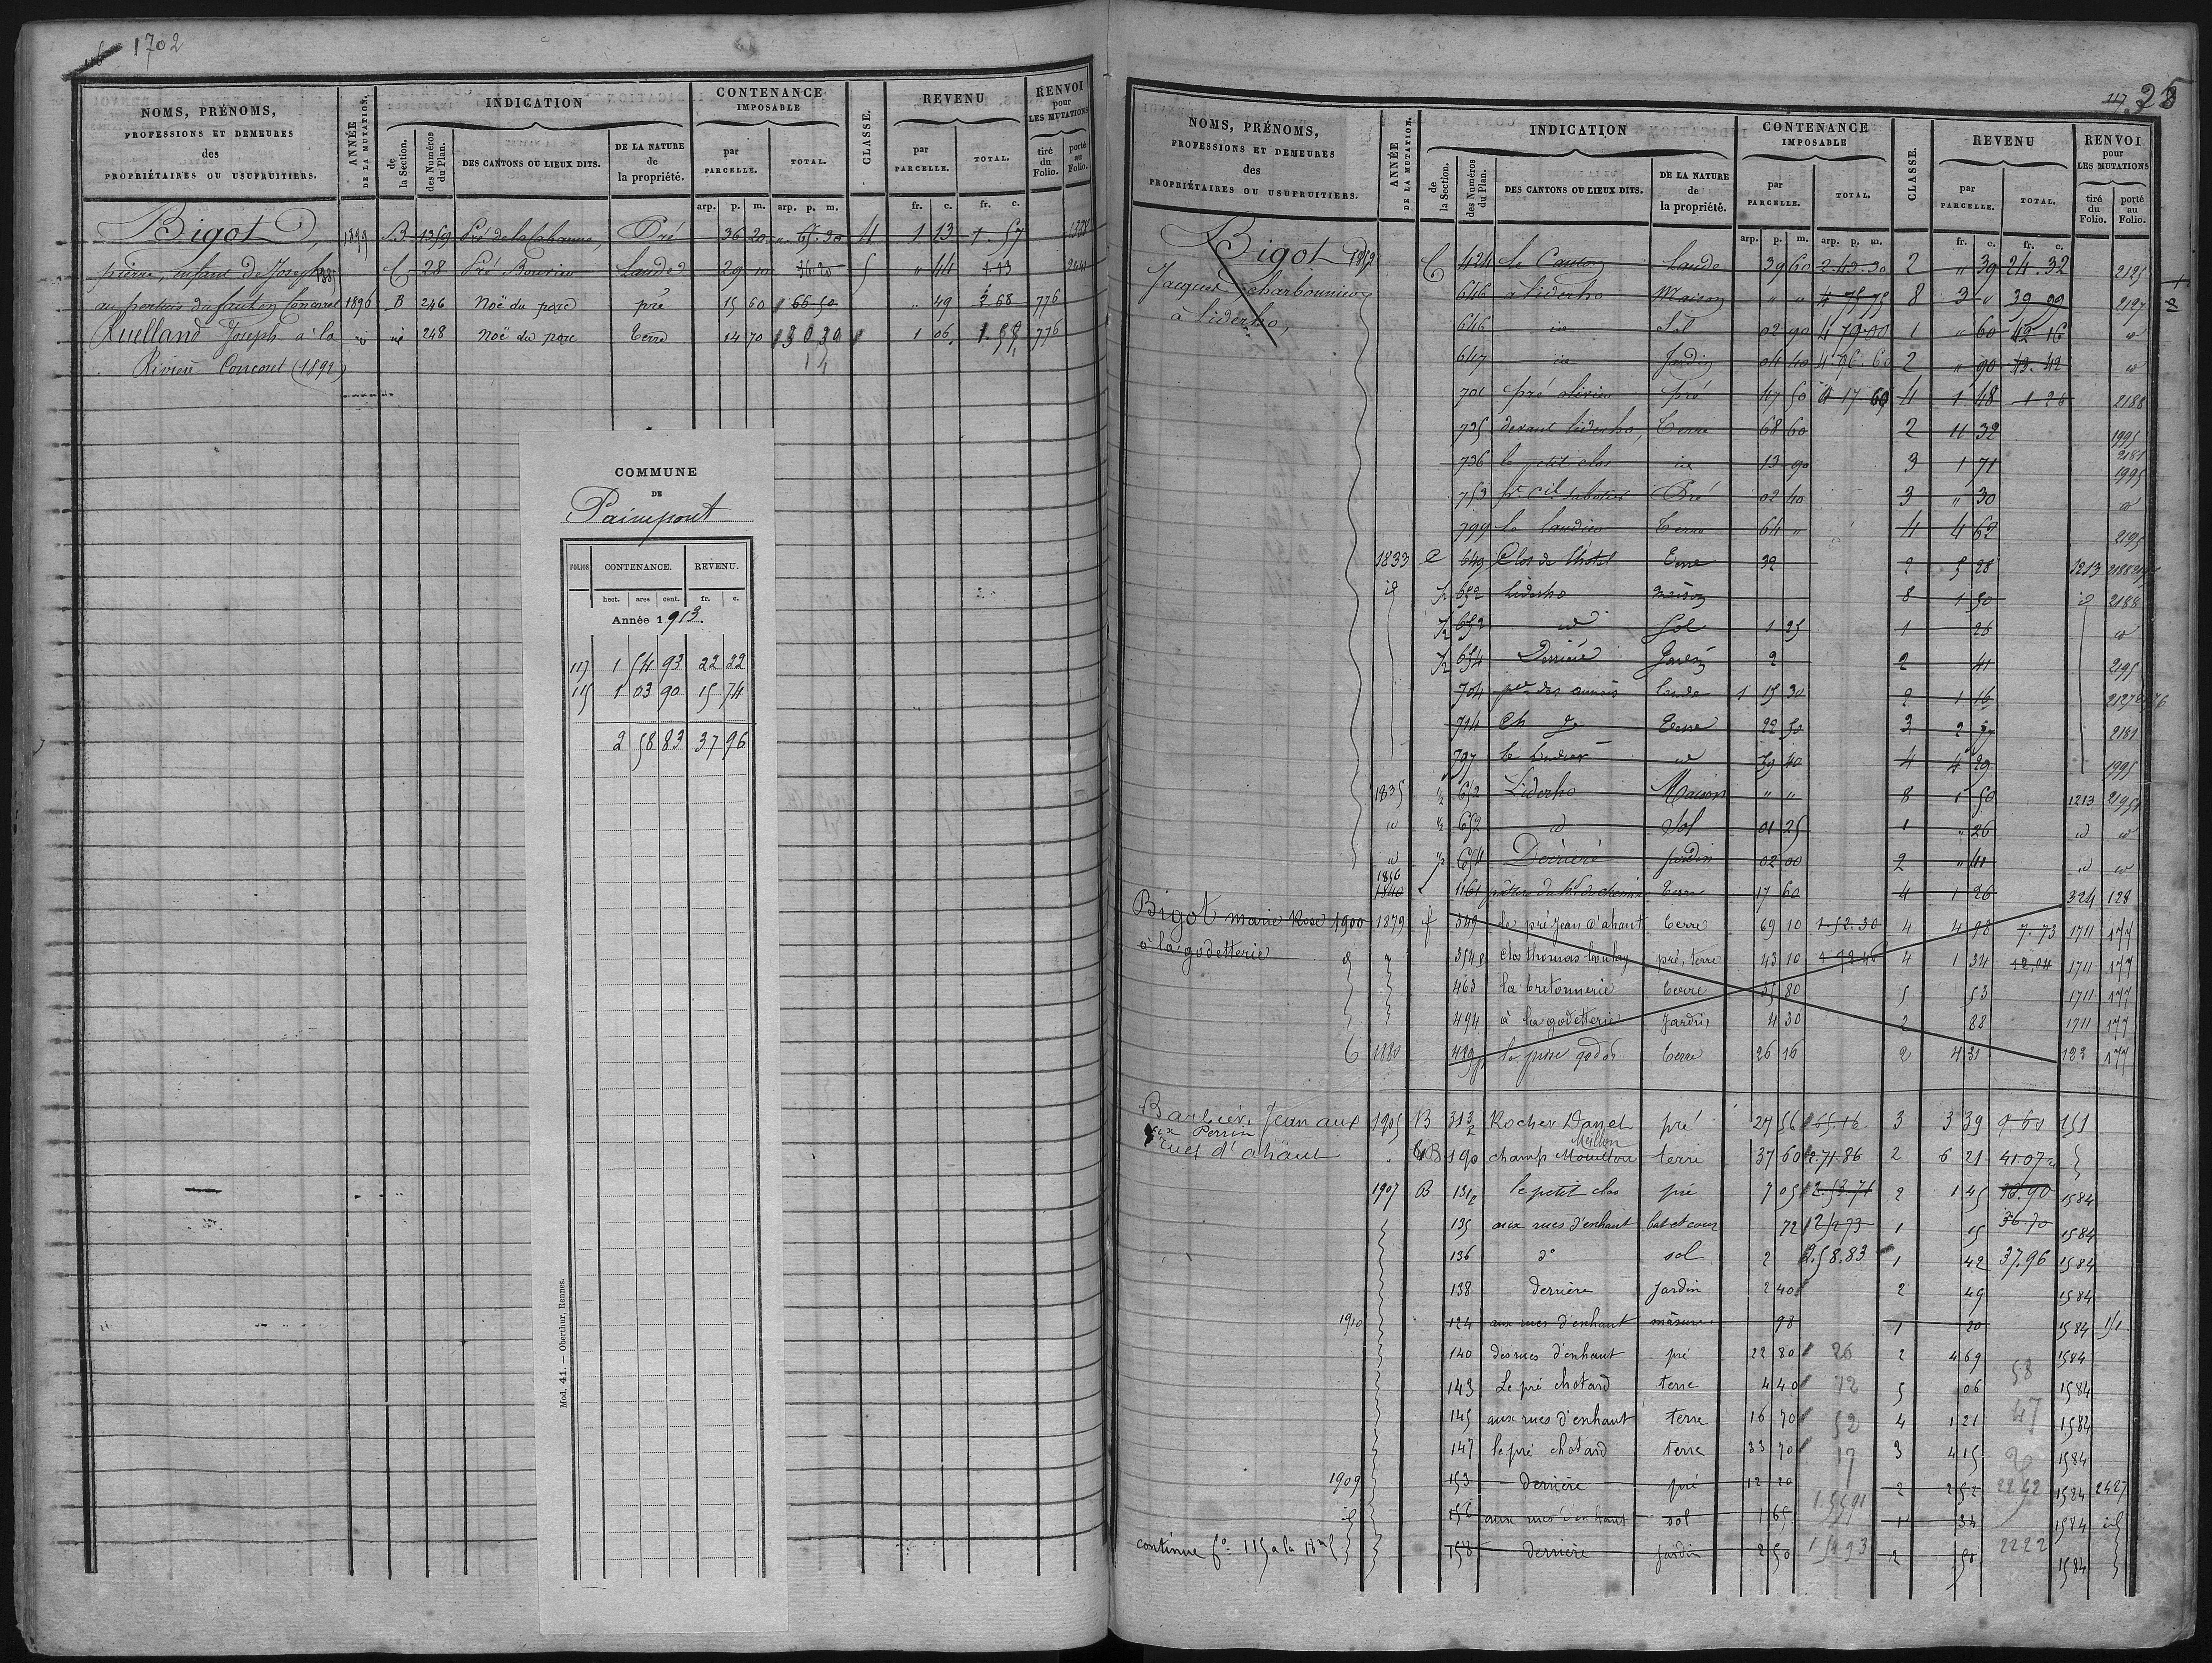 1702
NOMS, PRÉNOMS, PROFESSIONS ET DEMEURES des PROPRIÉTAIRES OU USUFRUITIERS.
ANNÉE DE LA MUTATION.
INDICATION
de la Section.
des Numéros du Plan.
DES CANTONS OU LIEUX DITS.
DE LA NATURE de la propriété.
CONTENANCE IMPOSABLE
par PARCELLE.
TOTAL.
CLASSE.
REVENU
par PARCELLE.
TOTAL.
RENVOI pour LES MUTATIONS
tiré du Folio.
porté au Folio.
arp. p. m. arp. p. m. fr. c. fr. c.
Bigot, 1899 B 1359 Pré de la Cabanne, Pré 36 20 65.30 4 1 13 1.57
pierre, enfant de Joseph C 28 Pré Bouvier Lande 29 10 5 " 44 2441
Concoret 1896 B 246 Noë du parc pré 15 60 66 50 " 49 776
Ruelland Joseph à la id id 248 Noë du parc Terre 14 70 30.30 1 06 1.55 776
Rivière Concoret (1892) 14
COMMUNE
DE
Paimpont
FOLIOS CONTENANCE. REVENU.
hect. ares cent. fr. c.
Année 1913.
117 1 54 93 22 22
115 1 03 90 15 74
2 58 83 37 96
Mod. 41. — Oberthur, Rennes.
117
NOMS, PRÉNOMS, PROFESSIONS ET DEMEURES des PROPRIÉTAIRES OU USUFRUITIERS.
ANNÉE DE LA MUTATION.
INDICATION
de la Section.
des Numéros du Plan.
DES CANTONS OU LIEUX DITS.
DE LA NATURE de la propriété.
CONTENANCE IMPOSABLE
par PARCELLE.
TOTAL.
CLASSE.
REVENU
par PARCELLE.
TOTAL.
RENVOI pour LES MUTATIONS
tiré du Folio.
porté au Folio.
arp. p. m. arp. p. m. fr. c. fr. c.
Bigot C 424 le Canton Lande 39 60 2.43.30 2 " 39 24.32 2125
Jacques charbonnier 646 à liderho Maison " " 4 75 75 8 3 " 39 99 2127
à liderho, 646 id Sol 02 90 4 79 00 1 " 60 42 16 id
647 id Jardin 04 40 4 96.60 2 " 90 43.42 id
701 pré olivier pré 47 50 4 17 60 4 1 48 1 26 2188
735 devant liderho, Terre 68 60 2 11 32 1995
2181
736 le petit clos id 13 90 3 1 71 1995
753 Pré 02 40 3 " 30 id
799 le landier Terre 64 " 4 4 62 2195
1833 C 649 Clos de l'hotel Terre 32 2 5 28 1213 2188
id ½ 652 Liderho maison 8 1 50 id 2188
½ 652 id Sol 1 25 1 26 id
½ 654 Derrière Jardin 2 2 41 2195
704 des aunais lande 1 15 30 2 1 16
714 Ch Terre 22 50 3 2 2181
797 le landier id 59 40 4 4 29 1995
1835 ½ 652 Liderho Maison " " 8 1 50 1213 2195
id ½ 652 id Sol 01 25 1 " 26 id id
id ½ 654 Derrière Jardin 02 00 2 " 41 id id
1856
1840 1161 Terre 17 60 4 1 26 324 128
Bigot marie Rose 1900 1879 f 349 le pré Jean d'ahaut terre 69 10 1.52.30 4 4 98 7.73 1711 177
à la godetterie 354 clos thomas boulay pré, terre 43 10 4 1 34 12.04 1711 177
463 la bretonnerie terre 35 80 5 53 1711 177
494 à la godetterie Jardin 4 30 2 88 1711 177
1880 499 la prise godet terre 26 16 2 4 31 123 177
Barbier, Jean aux 1905 B 313 Rocher Danet pré 27 56 65.16 3 3 39 9 60 151
Perrin
Meillon
rues d'ahaut B 190 champ Mouillou terre 37 60 2.71.86 2 6 21 41.07
1907 B 131 le petit clos pré 7 05 2.53 71 2 1 45 38.90 1584
135 aux rues d'enhaut bat et cour 72 1 15 36.70 1584
136 do sol 2 2.58.83 1 42 37.96 1584
138 derrière Jardin 2 40 2 49 1584
1910 124 aux rues d'enhaut mâsure 98 1 20 1584 151
140 des rues d'enhaut pré 22 80 26 2 4 69 1584
143 Le pré chotard terre 4 40 72 5 06 58 1584
145 aux rues d'enhaut terre 16 70 52 4 1 21 47 1584
147 le pré chotard terre 33 70 17 3 4 15 20 1584
1909 153 derrière pré 12 20 2 2 52 1584 2427
id 156 aux rues d'enhaut sol 1 65 1 34 1584 id
continue fo. 115 158 derrière Jardin 2 50 2 50 2222 1584